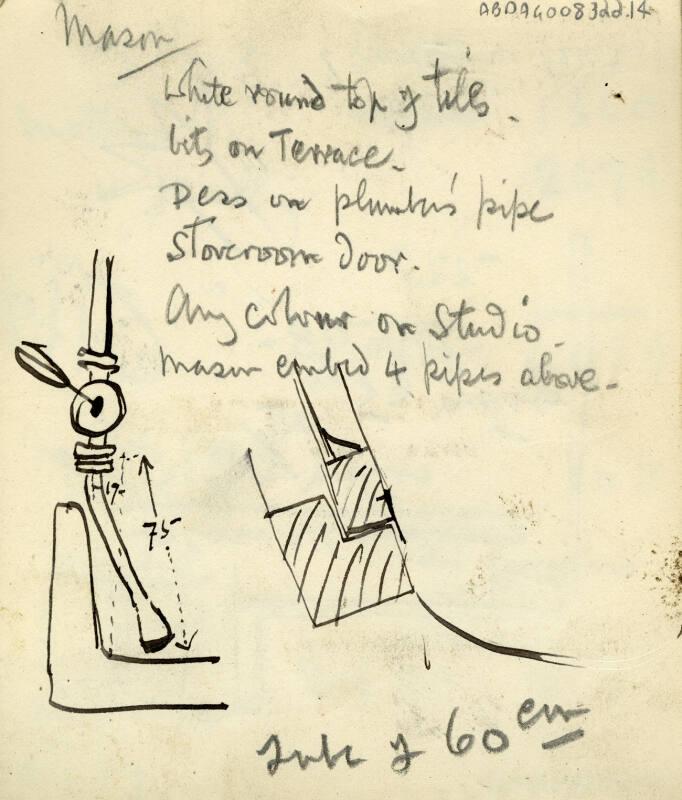 ABDAG008322.14
Mason
White round top of tiles.
bits on Terrace.
Dess on plumber's pipe
Storeroom door.
Any colour on Studio.
Mason embed 4 pipes above.
17
75
tube of 60 cm